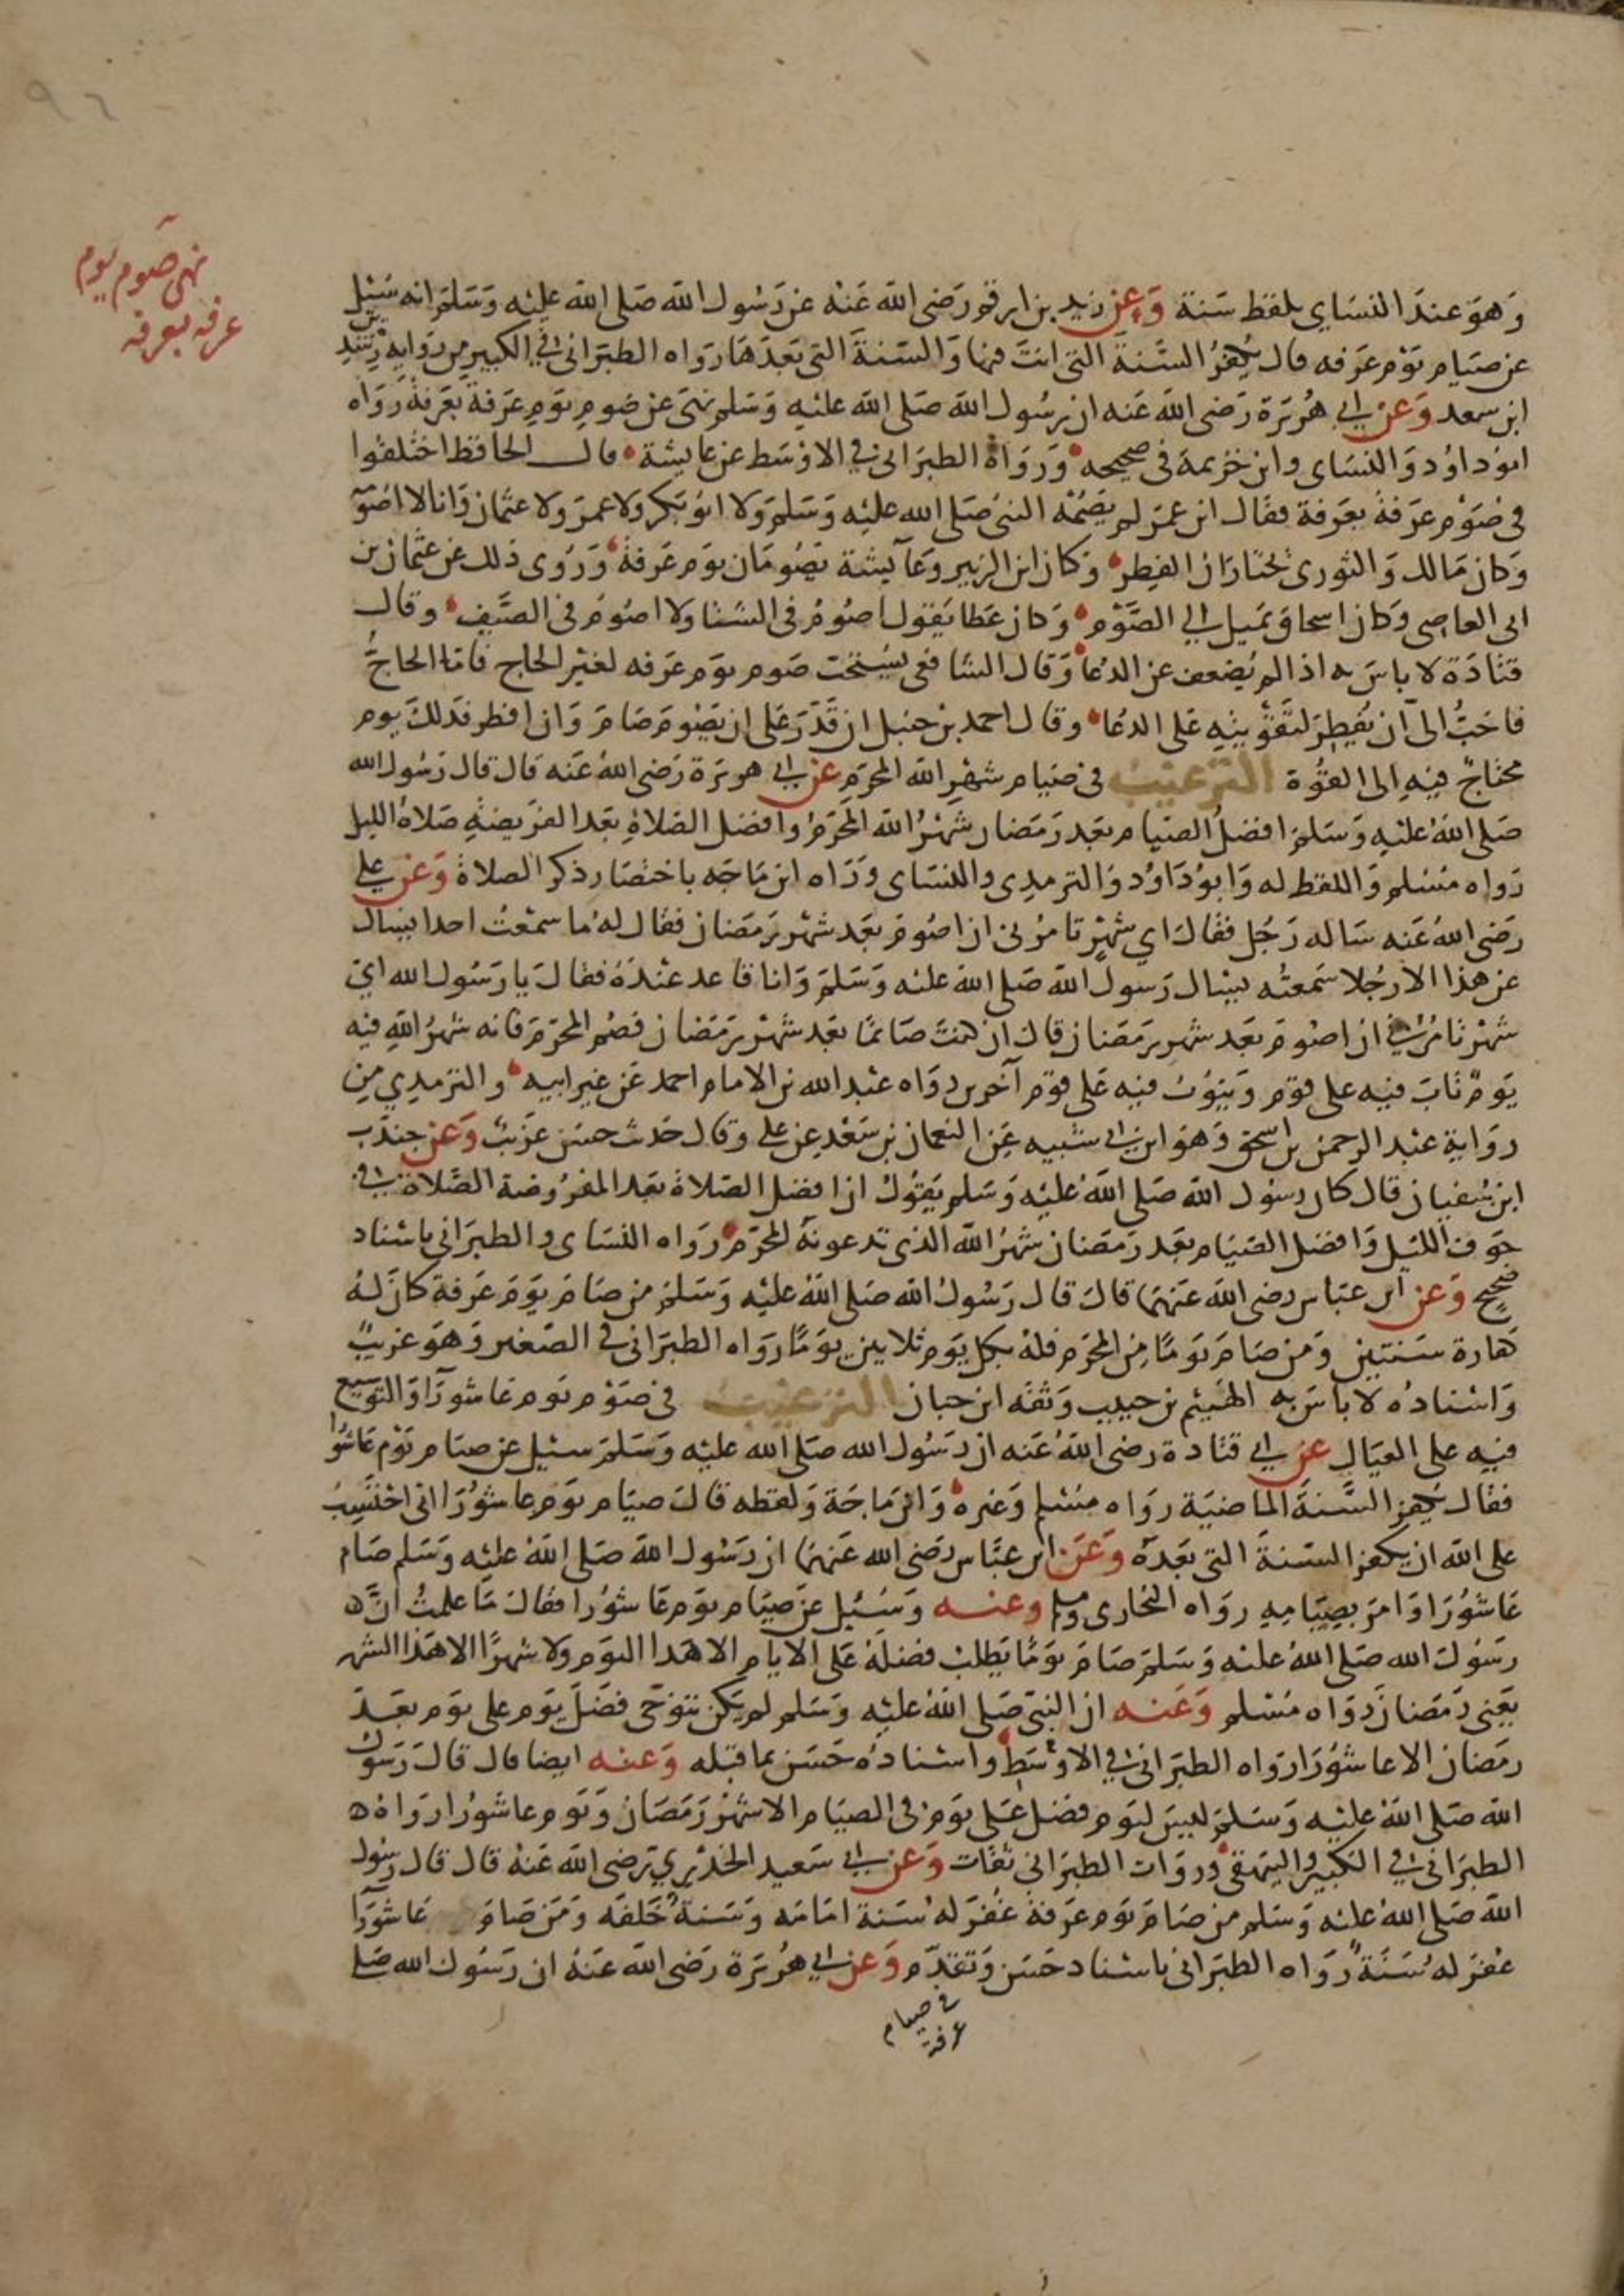 ٩٦
نهى صوم يوم
عرفه بعرفه
وَهوَ عندَ النسَاي بلفظ سَنة وَعن زيد بن ارقم رَضى الله عَنه عن رَسُول الله صَلى الله عليْه وَسَلم انه سُئيل
عن صيَام يوْم عَرفه قال يُكفرُ السَّنةَ التى انتَ فيها وَالسَّنةَ التى بَعدَها رَوَاه الطبَرانى في الكبير من رِوَايه رِشدِين
ابن سعد وَعن ابي هُريَرة رَضى الله عَنه ان رسُول الله صَلى الله عليْه وَسَلم نهَى عن صَوم يوَمِ عَرفةَ بعَرفةَ رَوَاه
ابوُ داوُد وَالنسَاى وابن خزيمة فى صحيحه وَرَوَاهُ الطبَرانى في الاوْسَط عن عايشة قال الحافظ اختلفوا
فى صَوْم عرَفةَ بعَرفة فقال ابن عمَر لم يصُمْه النبىُ صَلى الله عليْه وَسَلم وَلا ابوُ بَكر ولا عمَر ولا عثمان وَانا لا اصُومه
وَكان مَالك وَالثورى يختارَان الفِطر وَكان ابن الزبير وعَآيشة يصُومَان يوَم عَرفةَ وَرُوى ذلك عن عثمان بن
ابى العاصى وَكان اسحاق يَميل الي الصَّوْم وَكان عَطا يَقول اصُومُ فى الشتا ولا اصُومُ فى الصَّيف وقال
قتادَة لا باسَ به اذا لم يُضعف عن الدُعا وَقال الشافعى يسُتحَبّ صَوم يوَم عَرفه لغيْر الحاج فامَّا الحاجُّ
فاحَبُّ الى ان يُفطِرَ لتقوّيتِهِ عَلى الدعُا وقال احمد بن حنبل ان قَدَرَ عَلى ان يَصُومَ صَامَ وَان افطر فذلكَ يوم
محتاجٌ فِيهِ الى القوُّة الترغيب فى صيَام شهْرِ الله المحَرم عن ابي هريرَة رَضى اللهُ عَنه قال قال رَسُول الله
صَلى اللهُ عليْهِ وَسَلم افضلُ الصيَام بعَد رَمَضان شهْرُ الله المحرّمُ وافضل الصَلاةِ بعَد الفرَيضةِ صَلاةُ الليل
رَواه مسُلم وَاللفظ له وَابوُ دَاوُد وَالترمِدِى والنسَاى وَرَوَاه ابن مَاجَه باختصَار ذكر الصلاة وَعَن علي
رَضى اللهُ عَنه سَاله رَجُل فقالَ اي شهْرٍ تامُرُنى ان اصُومَ بعَد شهْر رَمَضان فقال لهُ ما سمعْتُ احدا يسال
عن هذا الا رجُلا سَمعتُه يسال رَسول الله صَلى الله عليْه وَسَلم وَانا قاعد عنْدَهُ فقالَ يا رَسُول الله اي
شهْر تامُرُنى ان اصُومَ بعَد شهْر رَمَضان قال ان كنتَ صَائمًا بعَد شهْر رَمَضان فصُم المحَرم فانه شهْرُ اللهِ فيه
يَومٌ تابَ فيْهِ على قوْم وَيَتوُبُ فيْهِ على قوْم آخرين رَوَاه عَبْد الله بن الامام احمد عَن غير ابيه والترمِدِي مِن
رِوَاية عَبْد الرحمن بن اسحق وَهوَ ابن ابى شيبه عَن النعمان بن سَعْد عن علي وقال حَديث حسَن غرَيب وَعن جندب
ابن سُفيان قال كان رسُول الله صَلى الله عليْه وَسَلم يَقوُل ان افضل الصَلاةَ بعَد المفرُوضة الصَّلاة في
جَوف الليْل وَافضَل الصَيَام بعَد رَمَضان شهْرُ الله الذى تدعونهُ المحرّم رَوَاه النسَاى والطبرَانى باسْناد
صحيح وَعن ابن عبَاس رضى الله عَنهمَا قال قال رَسُول الله صَلى اللهُ عليْه وَسَلم من صامَ يوَمَ عَرفة كان لهُ
كفارة سَنتين وَمن صَامَ يوَمًا مِن المحرَم فلهُ بكل يَوم ثلاثين يوَمًا رَوَاه الطبَرَانى في الصَغير وَهوَ غريبٌ
وَاسْنادُه لا باسَ به الهيثم بن حبيب وَثقه ابن حبان الترغيب فى صَوْم يوَم عَاشورَا وَالتوسيع
فِيهِ على العيَال عن ابي قتادة رضى اللهُ عَنه ان رَسُول الله صَلى الله عليْه وَسَلم سئيل عن صيَام يوَم عَاشُوْرا
فقال يُكفر السَّنةَ الماضيَة رَوَاه مسُلم وَغيرهُ وَابن مَاجَة وَلفظه قال صيَام يوَم عاشوُرَا انى احْتَسِبُ
على الله ان يكفر السَّنةَ التى بَعدَهُ وَعَن ابن عبَّاس رَضى الله عَنهمَا ان رَسُول الله صَلى الله عليْه وَسَلم صَام
عَاشوُرَا وَامَر بصِيَامِهِ رَوَاه البخارى ومسلم وعنه وَسُئيل عن صيَام يوَم عَاشورَا فقال مَا علمتُ انَّ
رَسُول الله صَلى الله عليْه وَسَلم صَامَ يوَمًا يَطلبُ فضلهُ عَلى الايام الا هَذا اليَوم وَلا شهْرًا الا هَذا الشهر
يَعنى رَمَضان رَوَاه مسُلم وَعَنه ان النبىّ صَلى اللهُ عليْه وَسَلم لم يَكن يتوَخى فضْلَ يوَم على يوَم بعَدَ
رمَضان الا عاشوُرَا رَوَاه الطبَرانى في الاوْسَط واسْنادُه حَسَن بما قبْله وَعنه ايضا قال قالَ رَسَولُ
الله صَلى اللهُ عليْه وَسَلم ليسَ ليوَم فضل عَلى يوَم فى الصيَام الا شهْرَ رَمَضانَ وَيوَم عاشوُرَا رَوَاهُ
الطبرَانى في الكبير والبيهقى وَروَات الطبرَانى ثقات وَعن ابي سَعيد الخدْرِي رَضى الله عَنهُ قال قال رسُول
الله صَلى اللهُ عليْه وَسَلم من صَامَ يوَم عرَفة غُفرَ له سَنة امَامَه وَسَنةٌ خَلفَه وَمَن صَامَ عَاشورَآ
غفرَ له سَنَةٌ رَوَاه الطبَرانى باسْناد حَسَن وَتقدّم وَعن ابي هُريَرة رَضى الله عَنهُ ان رَسُول الله صَلى
في صيام
عرفة